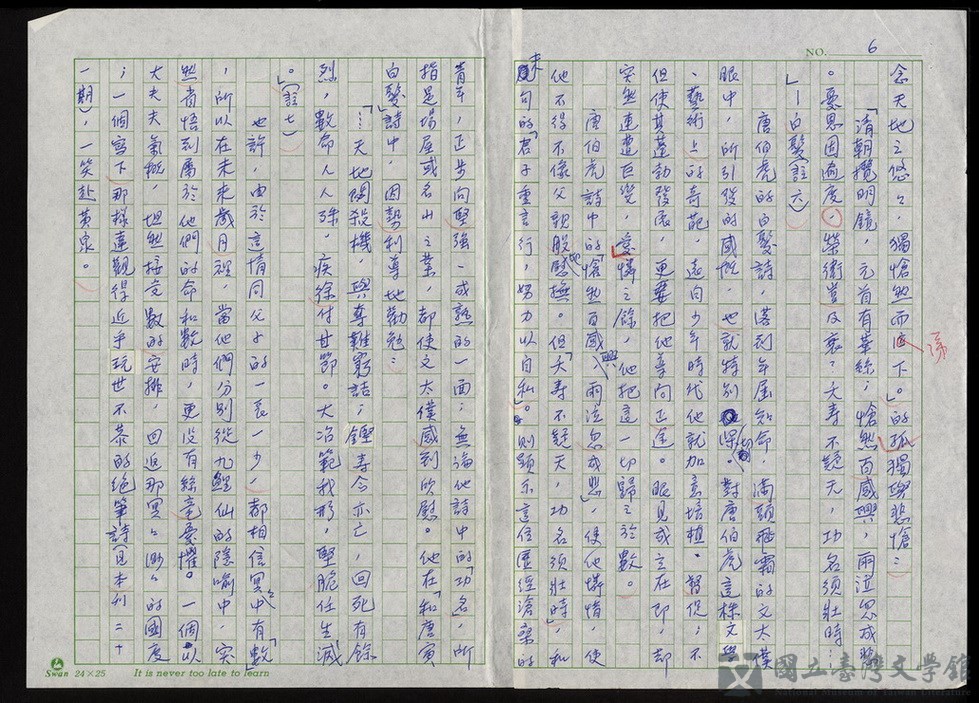 NO. 6
念天地之悠々，獨愴然而涕下。」的孤獨與悲愴：
「清朝攬明鏡，元首有華絲；愴然百感興，雨泣忽成悲
。憂思固逾度，榮衛豈及衰？夭壽不疑天，功名須壯時；
」—白髮（註六）
唐伯虎的白髮詩，落到年屆知命，滿頭飛霜的文太僕
眼中，所引發的感慨，也就特別深切。對唐伯虎這株文學
、藝術上的奇葩，遠自少年時代他就加意培植。督促；不
但使其蓬勃發展，更要把他導向正途。眼見成立在即，却
突然連遭巨變，哀憐之餘，他把這一切歸之於數。
唐伯虎詩中的「愴然百感興，雨泣忽成悲」，使他憐惜，使
他不得不像父親般地慰撫。但「夭壽不疑天，功名須壯時」，和
末句的「君子重言行，努力以自私」。則顯示這位匯經滄桑的
青年，正步向堅強、成熟的一面；無論他詩中的「功」「名」，所
指是場屋或名山之業，都使文太僕感到欣慰。他在「和唐寅
白髮」詩中，因勢利導地勸勉：
「…天地閟殺機，與奪難窮詰；鏗壽今亦亡，回死有餘
烈，數命人人殊，疾徐付甘節。大冶範我形，堅脆任生滅
。」（註七）
也許，由於這情同父子的一長一少，都相信冥々中有「數」
，所以在未來歲月裡，當他們分別從九鯉仙的隱喻中，突
然省悟到屬於他們的命和數時，更沒有絲毫憂懼。一個以
大丈夫氣概，坦然接受數的安排，回返那冥々渺々的國度
；一個寫下那樣達觀得近乎玩世不恭的絕筆詩（見本刊二十
一期），一笑赴黃泉。
Swan 24×25 It is never too late to learn
國立臺灣文學館
National Museum of Taiwan Literature